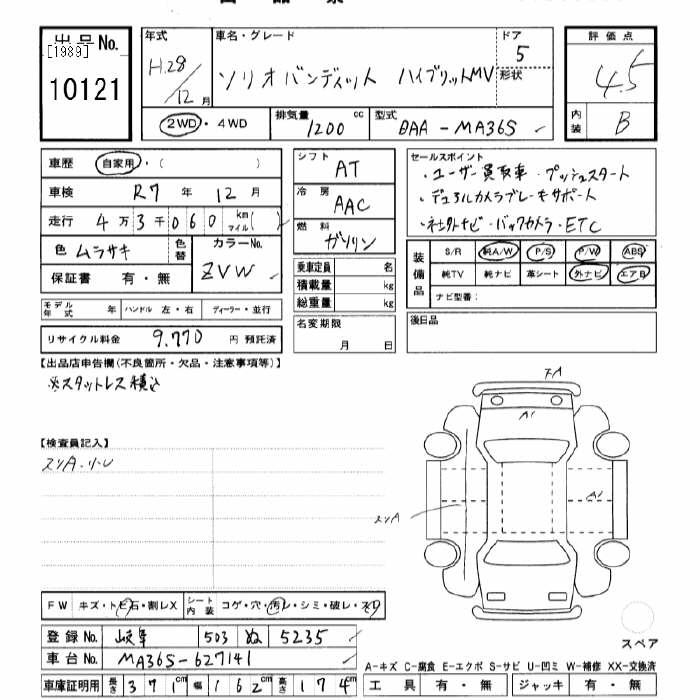 出品No.
[1989]
10121
年式
H.28
/12 月
車名・グレード
ソリオバンディット ハイブリットMV
ドア
5
形状
評価点
4.5
内装
B
2WD ・ 4WD
排気量 1200 cc
型式 DAA - MA36S
車歴 自家用・( )
車検 R7 年 12 月
走行 4 万 3 千 060 km マイル( )
色 ムラサキ 色替
カラーNo. ZVW
保証書 有・無
シフト AT
冷房 AAC
燃料 ガソリン
乗車定員 名
積載量 kg
総重量 kg
セールスポイント
・ユーザー買取車・プッシュスタート
・デュアルカメラブレーキサポート
・社外ナビ・バックカメラ・ETC
装備品
S/R 純A/W P/S P/W ABS
純TV 純ナビ 革シート 外ナビ エアB
ナビ型番：
モデル年式 年 ハンドル 左・右 ディーラー・並行
名変期限
月 日
後日品
リサイクル料金 9,770 円 預託済
【出品店申告欄(不良箇所・欠品・注意事項等)】
※スタットレス積込
【検査員記入】
A1
A1
FW キズ・トビ石・割レX
シート内装 コゲ・穴・汚レ・シミ・破レ・スレ
登録No. 岐阜 503 ぬ 5235
車台No. MA36S-627141
車庫証明用 長さ 371cm 幅 162cm 高さ 174cm
スペア
A-キズ C-腐食 E-エクボ S-サビ U-凹ミ W-補修 XX-交換済
工具 有・無 ジャッキ 有・無